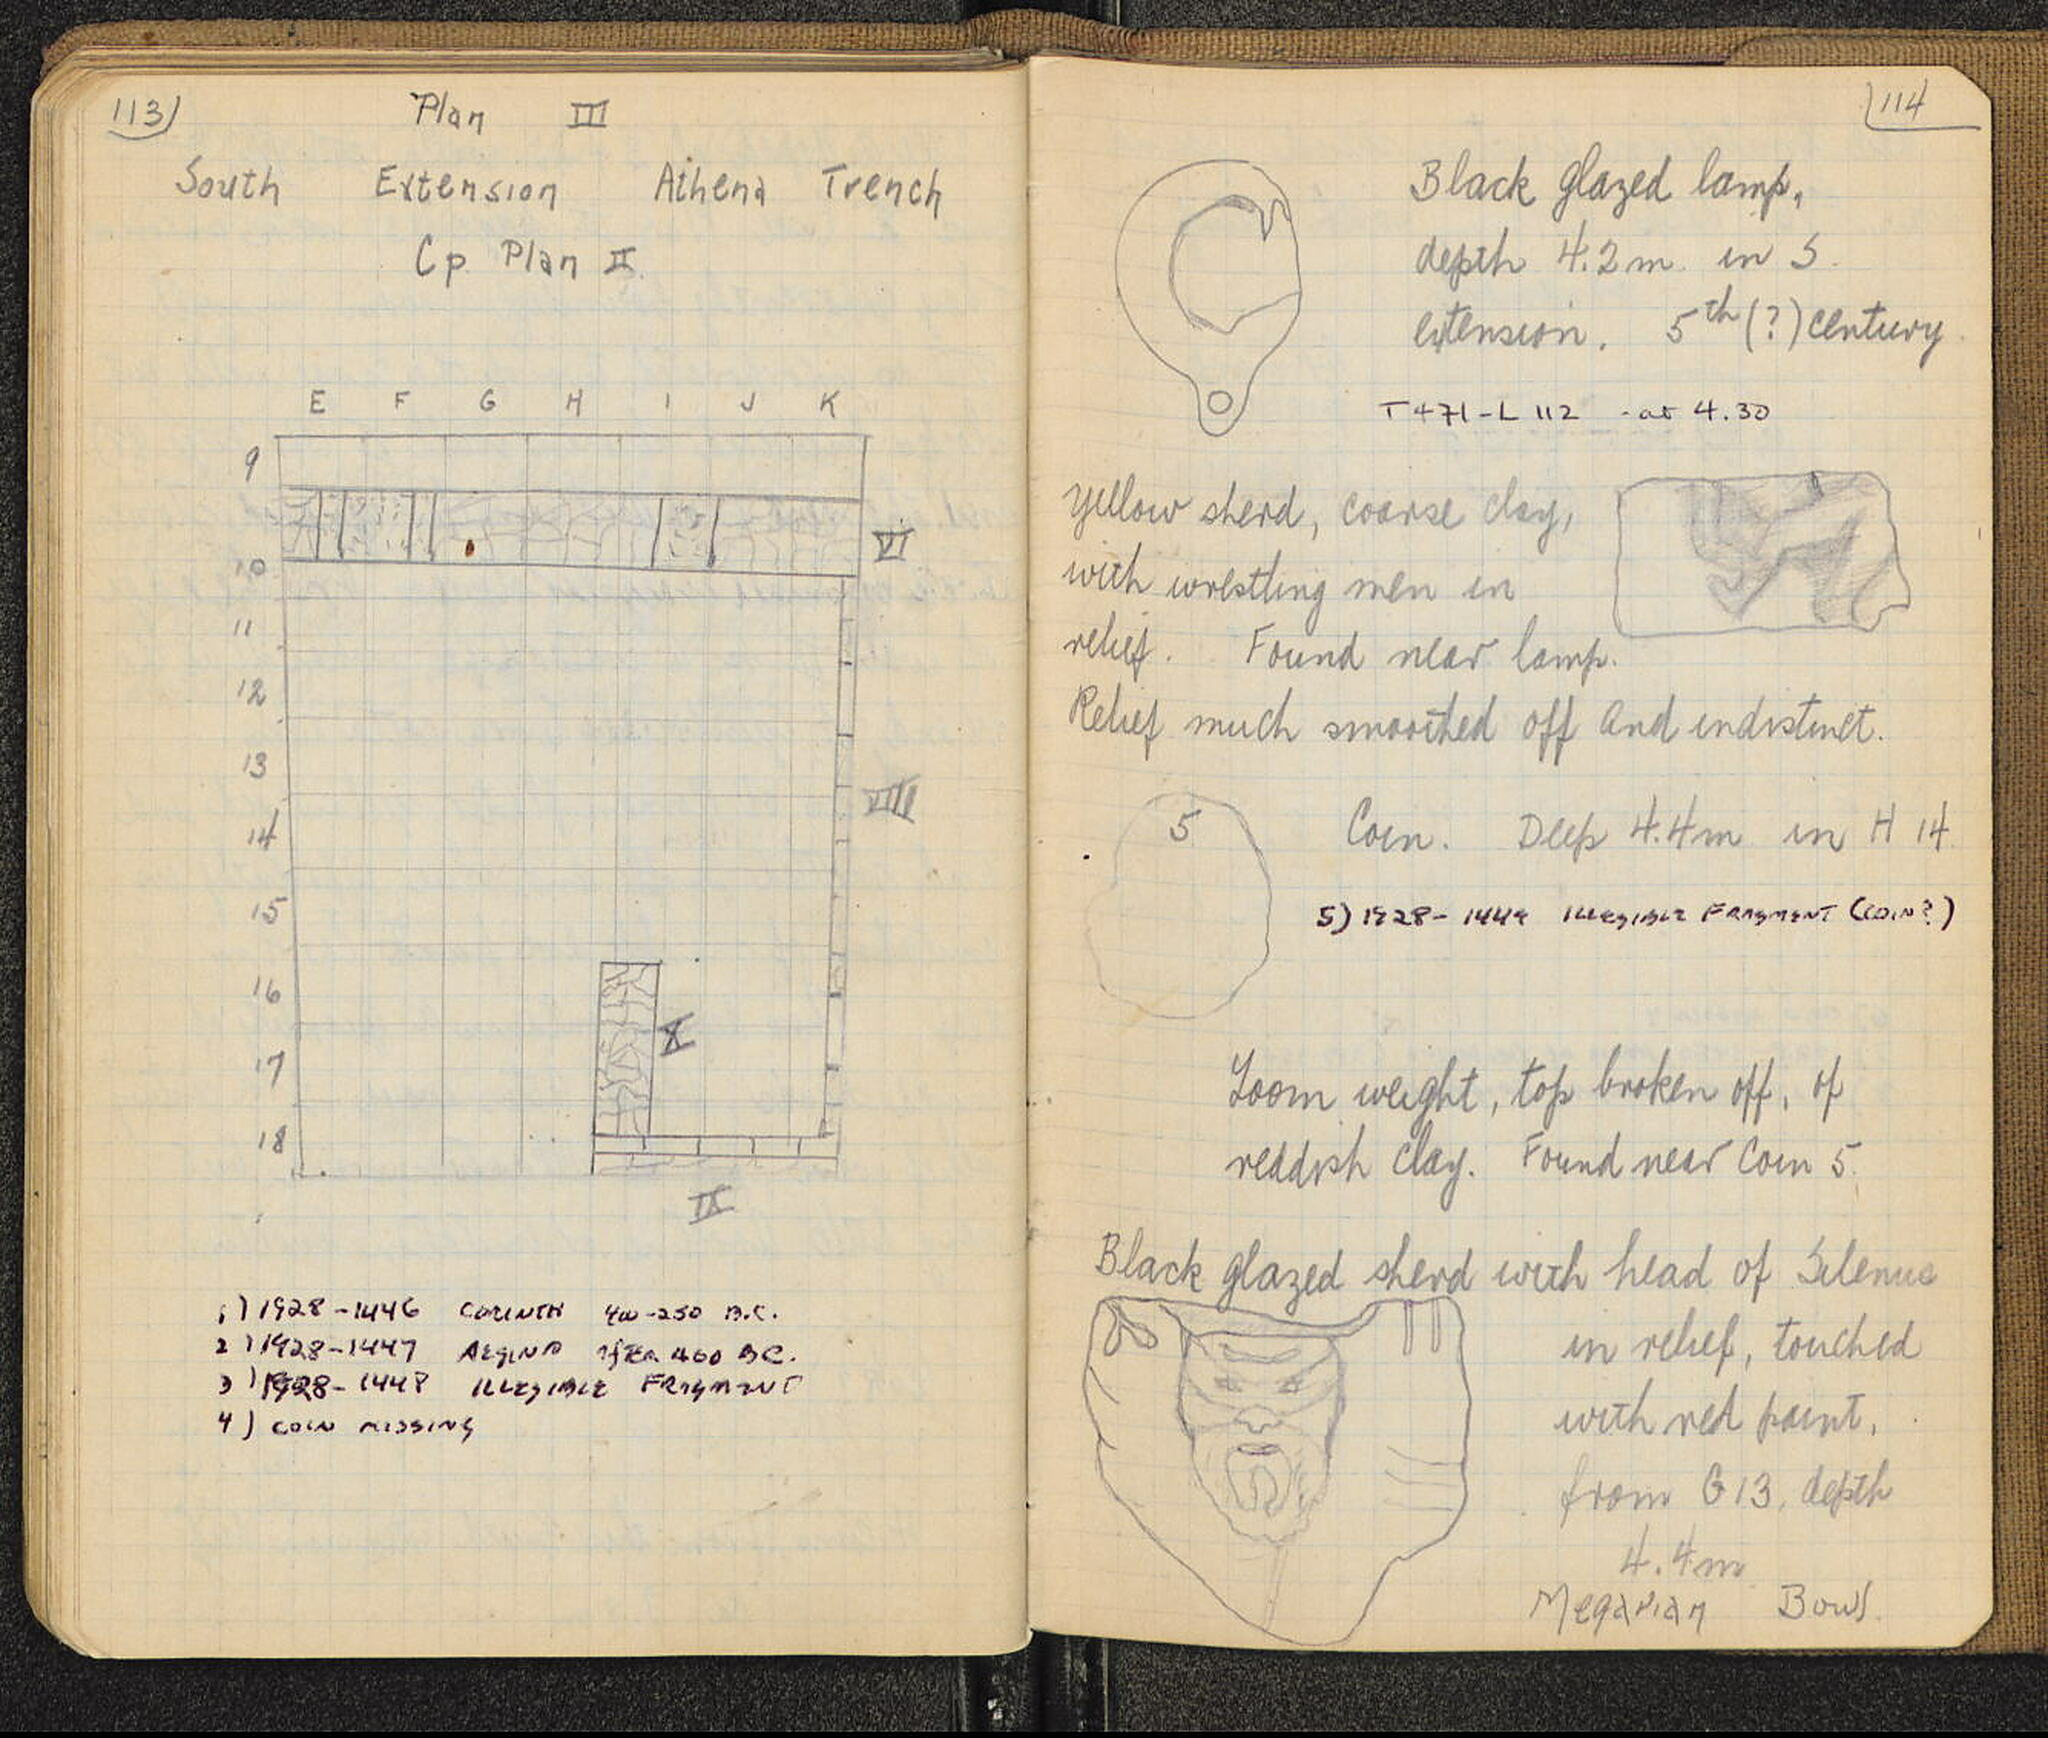 113)
Plan III
South Extension Athena Trench
Cp. Plan II
E F G H I J K
9
10
VI
11
12
13
VIII
14
15
16
X
17
18
IX
1) 1928-1446 CORINTH 400-250 B.C.
2) 1928-1447 AEGINA AFTER 400 B.C.
3) 1928-1448 ILLEGIBLE FRAGMENT
4) COIN MISSING
114
Black glazed lamp,
depth 4.2m in S.
extension. 5th (?) century
T471-L112 -at 4.30
Yellow sherd, coarse clay,
with wrestling men in
relief. Found near lamp.
Relief much smoothed off and indistinct.
5
Coin. Deep 4.4m in H 14
5) 1928-1449 ILLEGIBLE FRAGMENT (COIN?)
Loom weight, top broken off, of
reddish clay. Found near Coin 5.
Black glazed sherd with head of Silenus
in relief, touched
with red paint,
from G13, depth
4.4m
Megarian Bowl